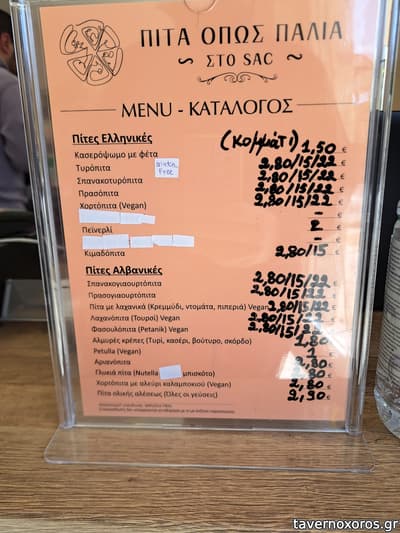 ΠΙΤΑ ΟΠΩΣ ΠΑΛΙΑ
~ ΣΤΟ SAC ~
MENU - ΚΑΤΑΛΟΓΟΣ
Πίτες Ελληνικές (κομμάτι)
Κασερόψωμο με φέτα 1,50 €
Τυρόπιτα Gluten Free 2,80/15/22 €
Σπανακοτυρόπιτα 2,80/15/22 €
Πρασόπιτα 2,80/15/22 €
Χορτόπιτα (Vegan) 2,80/15/22 €
- €
Πεϊνερλί 2 €
- €
Κιμαδόπιτα 2,80/15 €
Πίτες Αλβανικές
Σπανακογιαουρτόπιτα 2,80/15/22 €
Πρασογιαουρτόπιτα 2,80/15/22 €
Πίτα με λαχανικά (Κρεμμύδι, ντομάτα, πιπεριά) Vegan 2,80/15/22 €
Λαχανόπιτα (Τουρσί) Vegan 2,80/15/22 €
Φασουλόπιτα (Petanik) Vegan 2,80/15/22 €
Αλμυρές κρέπες (Τυρί, κασέρι, βούτυρο, σκόρδο) 1,80 €
Petulla (Vegan) 1 €
Αριανόπιτα 2,80 €
Γλυκιά πίτα (Nutella μπισκότο) €
Χορτόπιτα με αλεύρι καλαμποκιού (Vegan) 2,80 €
Πίτα ολικής αλέσεως (Όλες οι γεύσεις) 2,90 €
www.tavernoxoros.gr